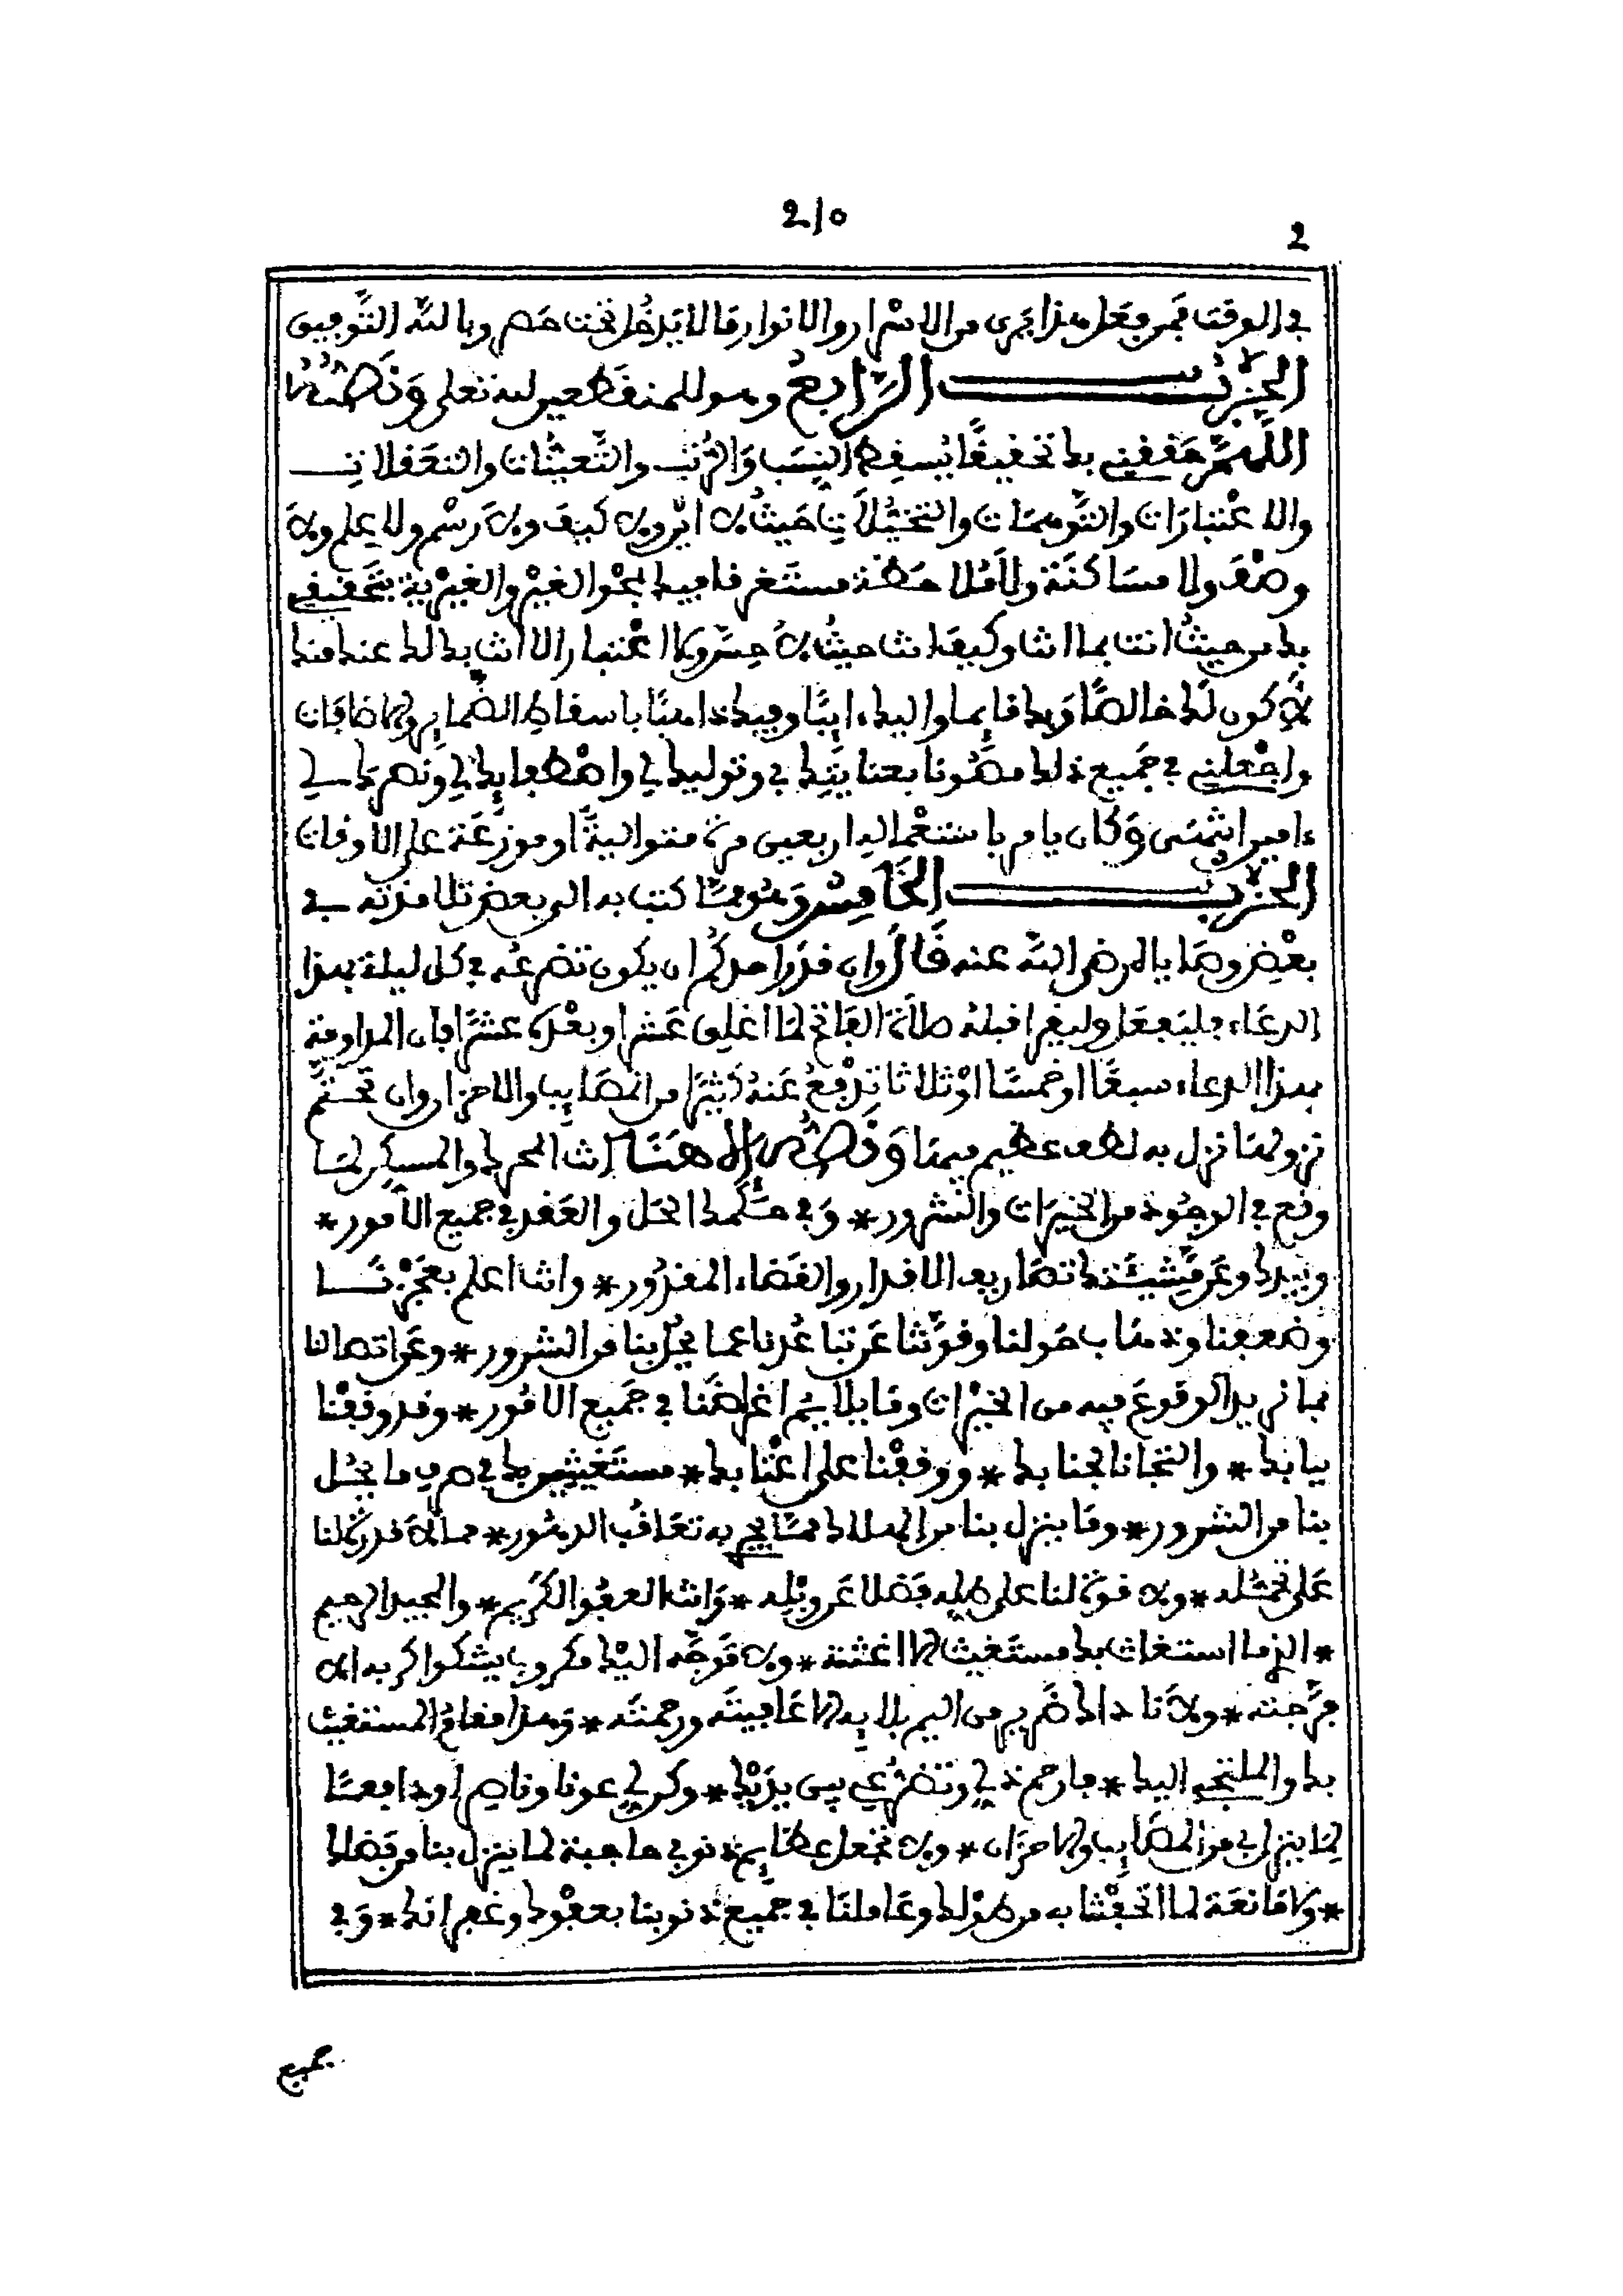 2/0
2
في الوقت فمن فعل هذا يرى من الاسرار والانوار ما لا يدخل تحت حصر وبالله التوفيق
الحزب الرابع وهو للمنقطعين لله تعلى ونصه
اللهم حققني بك تحقيقا يسقط النسب والرتب والتعينات والتعقلات
والاعتبارات والتوهمات والتخيلات حيث لا اين ولا كيف ولا رسم ولا علم ولا
وصف ولا مساكنة ولا ملاحظة مستغرقا فيك بمحو الغير والغيرية بتحقيقي
بك من حيث انت بما انت وكيف انت حيث لا حس ولا اعتبار الا انت بك لك عنك منك
لاكون لك خالصا وبك قائما واليك ءايبا وفيك ذاهبا باسقاط الضمائر والاضافات
واجعلني في جميع ذلك مصونا بعنايتك بي وتوليك لي واصطفائك لي ونصرك لي
ءامين انتهى وكان يامر باستعماله اربعين مرة متوالية او موزعة على الاوقات
الحزب الخامس وهو مما كتب به الى بعض تلامذته في
بعض وصاياه رضي الله عنه قال وان قدر احدكم ان يكون تضرعه في كل ليلة بهذا
الدعاء فليفعل وليقرا قبله صلاة الفاتح لما اغلق عشرا وبعده عشرا فان المداومة
بهذا الدعاء سبعا او خمسا او ثلاثا تدفع عنه كثيرا من المصايب والاحزان وان تحتم
نزولها نزل به لطف عظيم فيها ونصه الاهنا انت المحرك والمسكن لما
وقع في الوجود من الخيرات والشرور * وفي حكمك الحل والعقد في جميع الامور *
وبيدك وعن مشيئتك تصاريف الاقدار والقضاء المقدور * وانت اعلم بعجزنا
وضعفنا وذهاب حولنا وقوتنا عن تباعدنا عما يحل بنا من الشرور * وعن اتصالنا
بما نريد الوقوع فيه من الخيرات وما يلايم اغراضنا في جميع الامور * وقد وقفنا
ببابك * والتجانا لجنابك * ووقفنا على اعتابك * مستغيثين بك في صرف ما يحل
بنا من الشرور * وما ينزل بنا من الهلاك مما يجري به تعاقب الدهور * مما لا قدرة لنا
على تحمله * ولا قوة لنا على طله فضلا عن وبله * وانت العفو الكريم * والمجيد الرحيم
* الذي ما استغاث بك مستغيث الا اغثته * ولا توجه اليك مكروب يشكوا كربه الا
فرجته * ولا ناداك ضرير من اليم بلايه الا عافيته ورحمته * وهذا مقام المستغيث
بك والملتجئ اليك * فارحم ذلي وتضرعي بين يديك * وكن لي عونا وناصرا ودافعا
لما ينزل بي من المصايب والاحزان * ولا تجعل عظايم ذنوبي حاجبة لما ينزل بنا من فضلك
* ولا مانعة لما اتحفتنا به من طولك وعاملنا في جميع ذنوبنا بعفوك وغفرانك * وفي
جميع